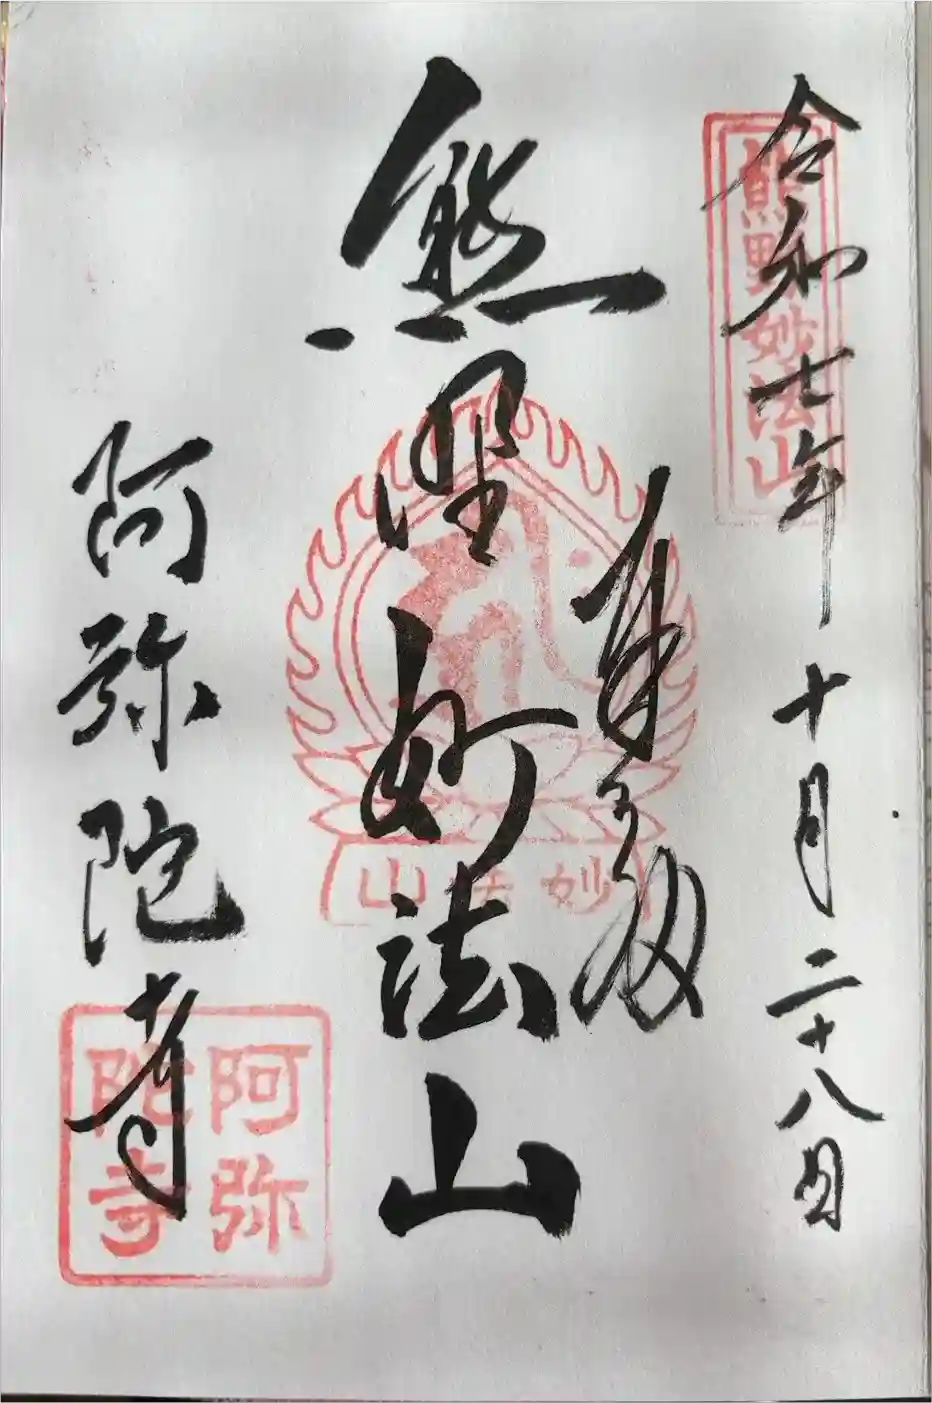 熊野妙法山
令和七年十月二十八日
奉
熊野妙法山
妙法山
阿弥陀寺
阿弥
陀寺